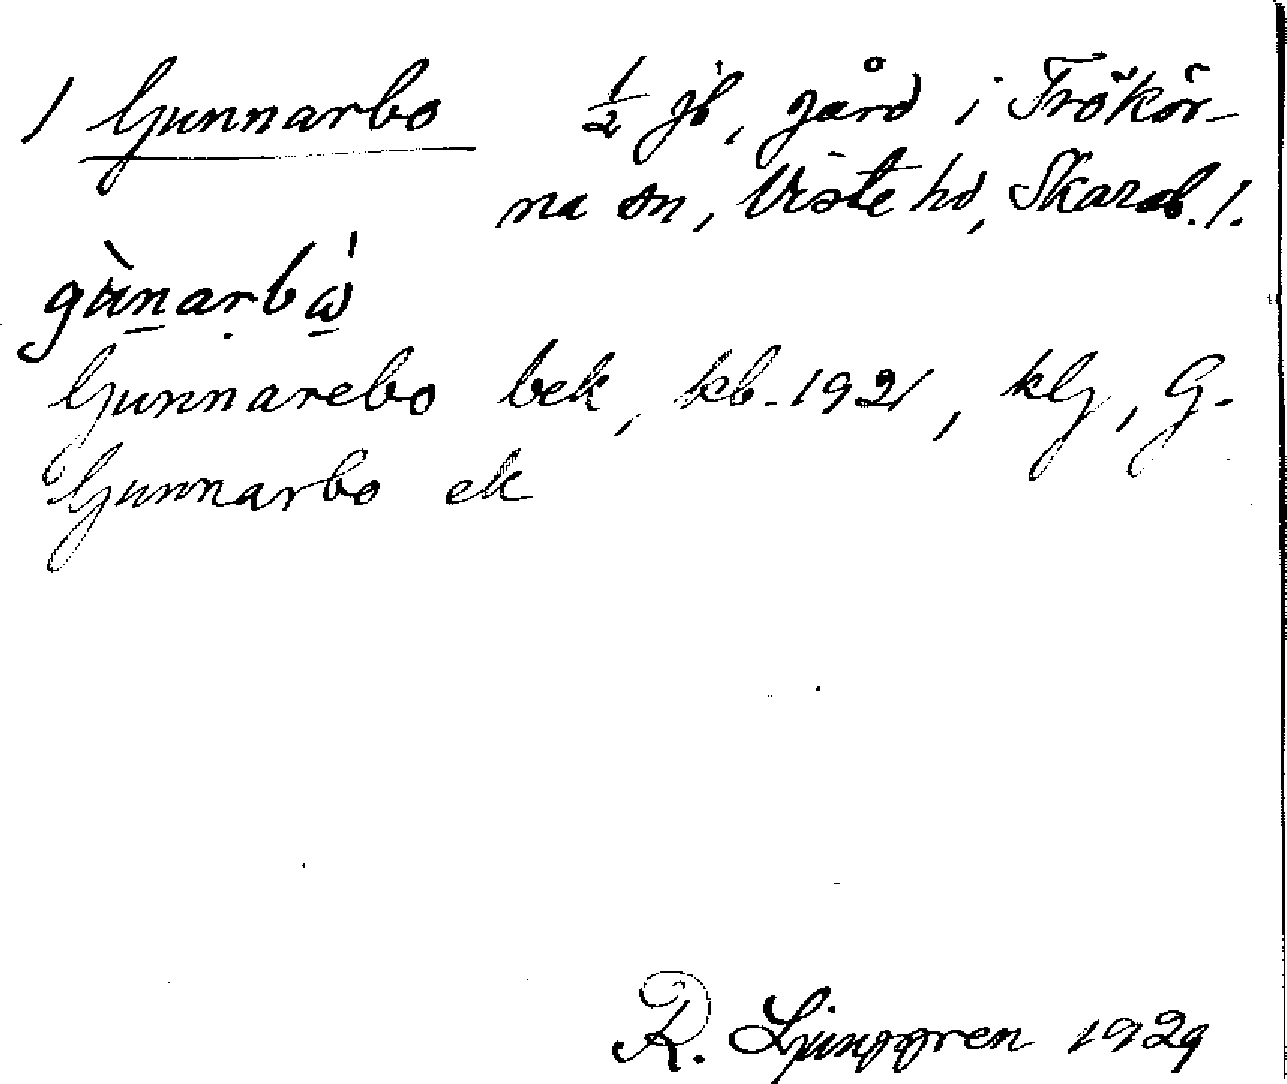 1 Gunnarbo ½ jb, gård i Trökör-
na sn, Viste hd, Skarab. l.
gùn̲ạrbὼ̲
Gunnarebo bek, kb. 1921, klg, G.
Gunnarbo ek
R. Ljunggren 1929